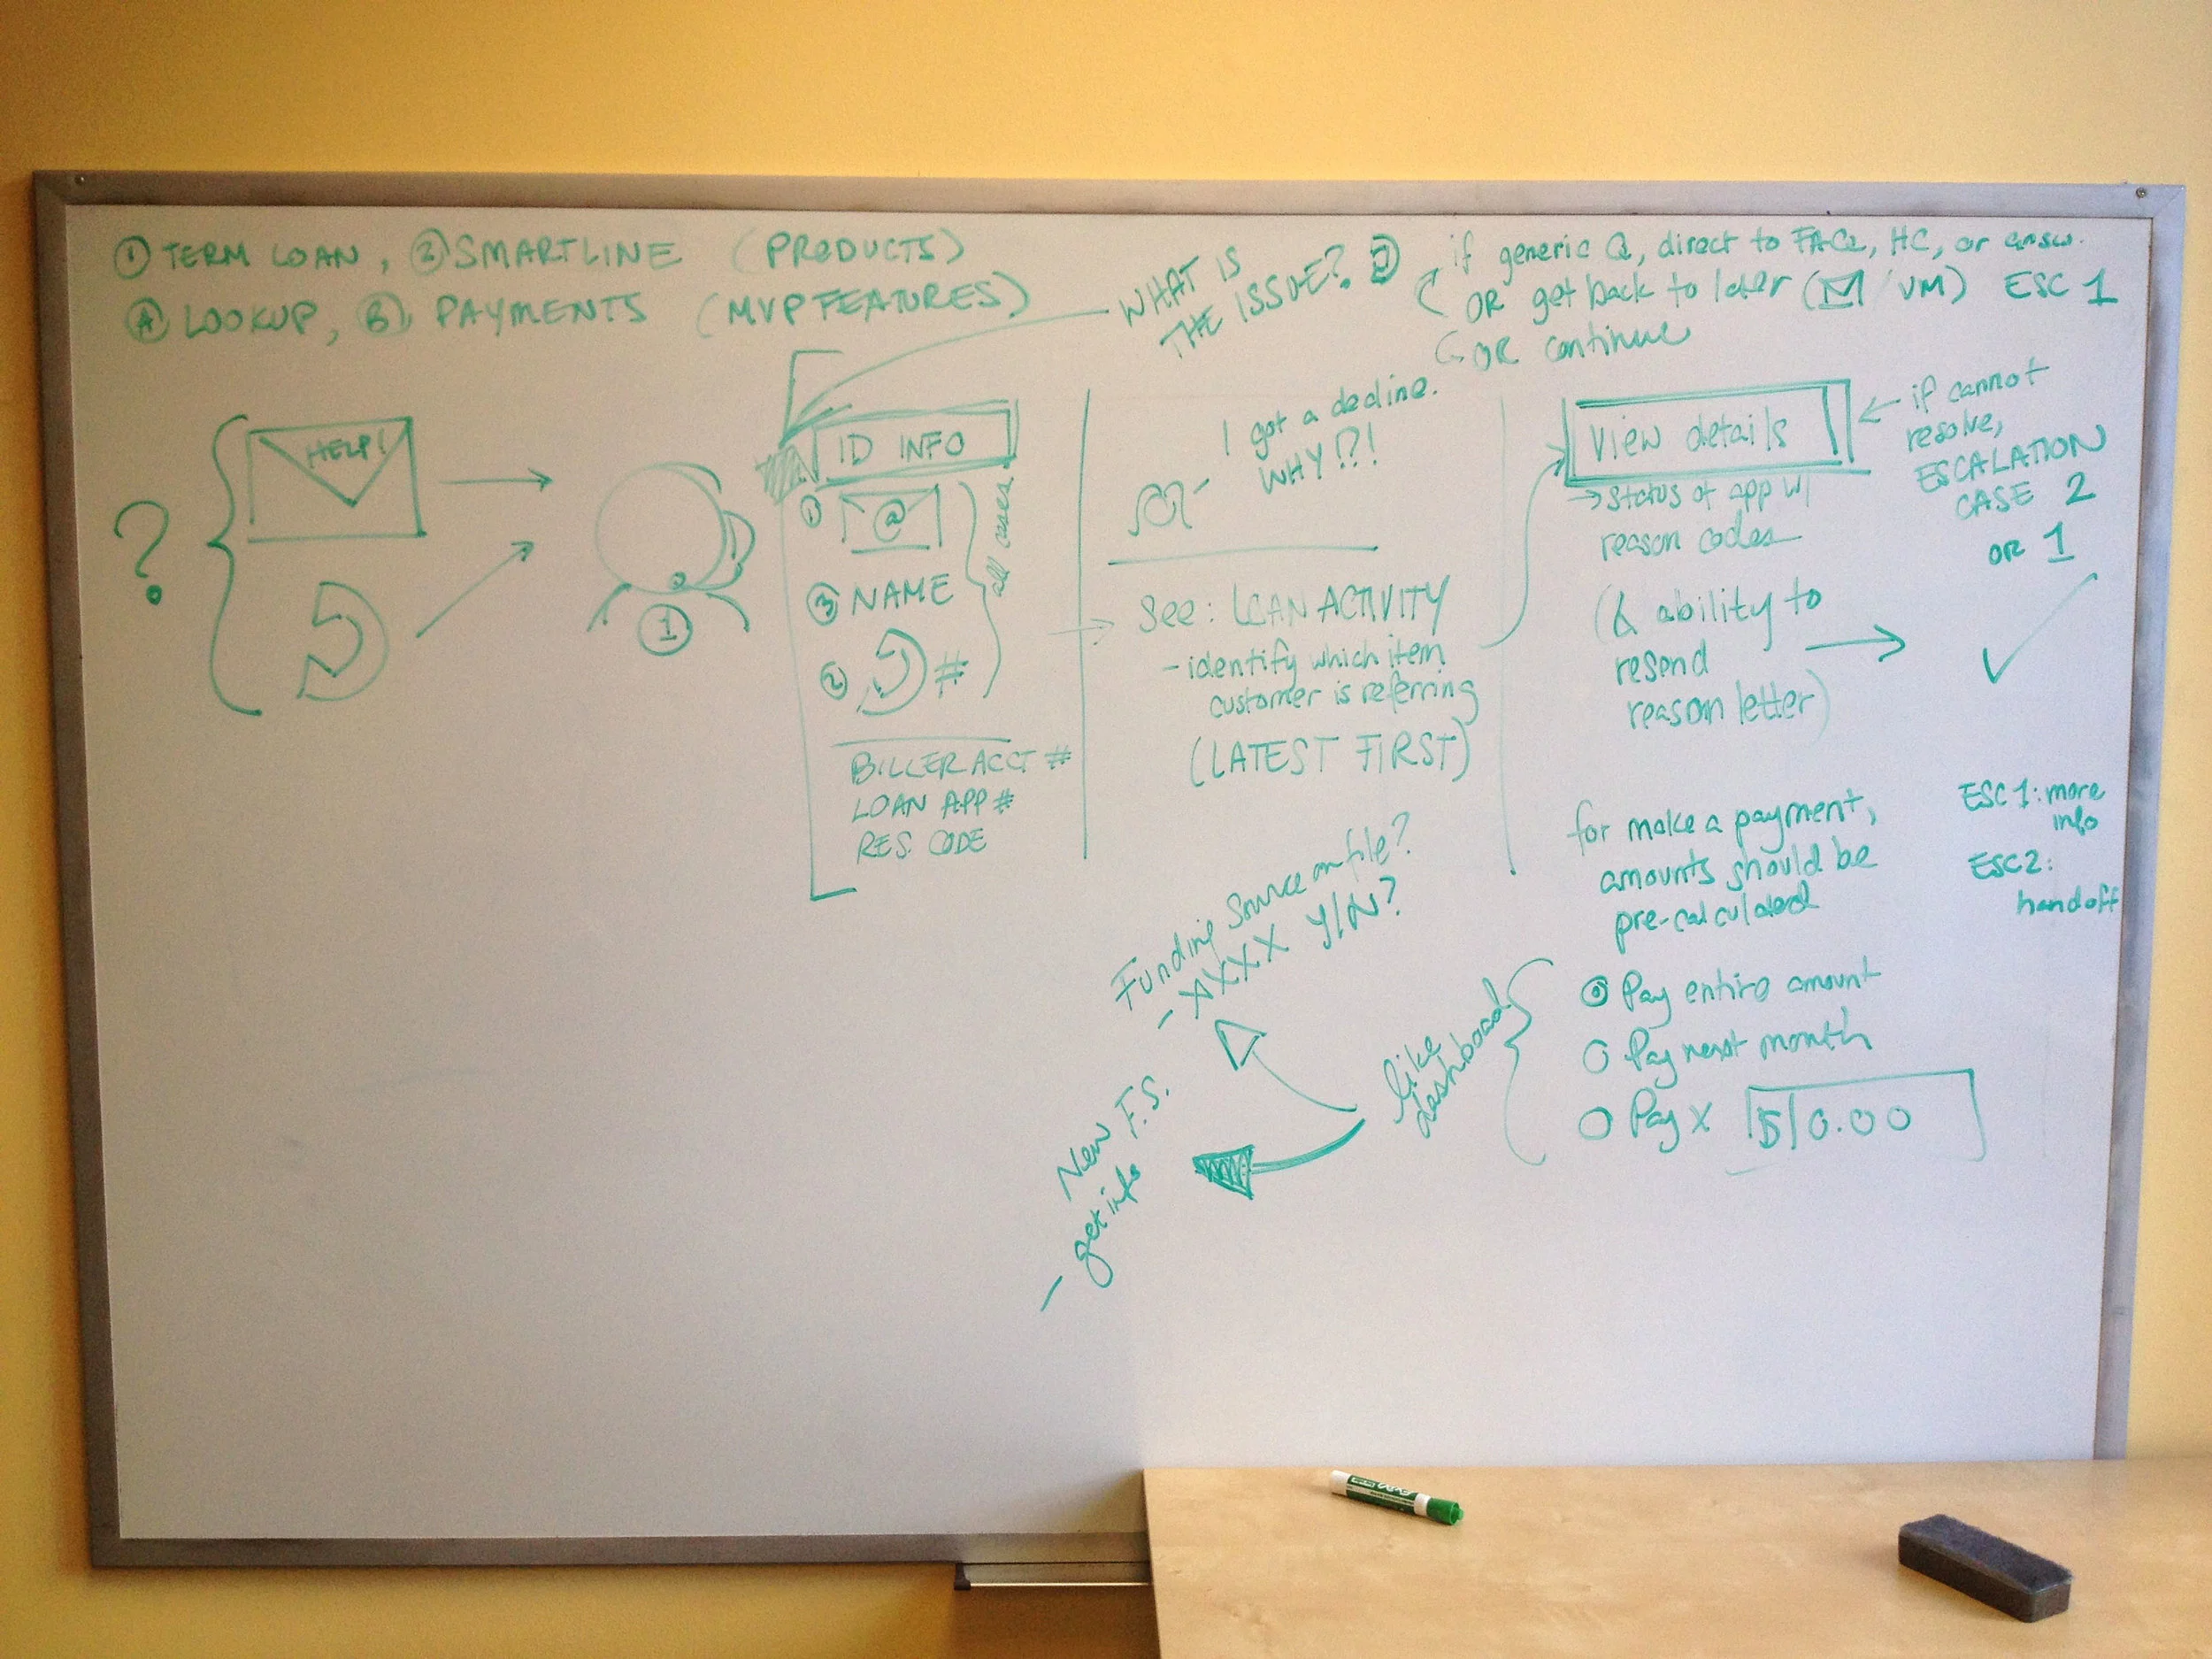 ① TERM LOAN, ② SMARTLINE (PRODUCTS)
Ⓐ LOOKUP, Ⓑ PAYMENTS (MVP FEATURES)
WHAT IS
THE ISSUE?
if generic Q, direct to FAQ, HC, or answ.
OR get back to later ( / VM) ESC 1
OR continue
?
HELP!
①
ID INFO
① @
③ NAME
② #
all cases
BILLER ACCT #
LOAN APP #
RES. CODE
I got a decline.
WHY!?!
See: LOAN ACTIVITY
- identify which item
customer is referring
(LATEST FIRST)
View details
→ status of app w/
reason codes
(& ability to
resend
reason letter)
if cannot
resolve,
ESCALATION
CASE 2
OR 1
ESC 1: more
info
ESC 2:
handoff
for make a payment,
amounts should be
pre-calculated
Pay entire amount
Pay next month
Pay X $ 0.00
like
dashboard
Funding Source on file?
- XXXX Y/N?
New F.S.
- get info